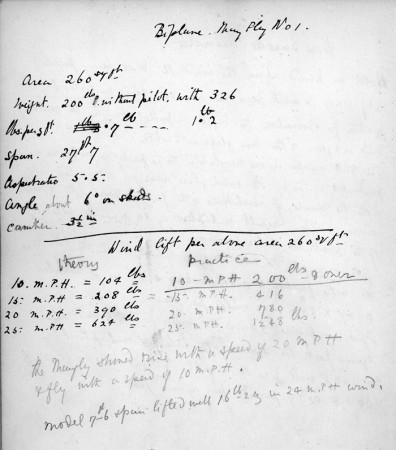 Biplane. Mayfly No 1.
Area 260 sq ft
Weight. 200 lbs. without pilot. with 326
lbs. per s. ft. .7 lb - - - - 1.2 lb
Span. 27 ft 7
Aspect ratio 5.5
Angle about 6° on skids
camber. 3½ in
Wind lift per above area 260 sq ft
theory practice
10. M.P.H. = 104 lbs 10 - MPH 200 lbs & over
15. M.P.H. = 208 lbs = 15. M.P.H. 416
20 M.P.H. = 390 lbs 20. M.P.H. 780
25. M.P.H = 624 lbs 25. M.P.H. 1248 lbs.
the Mayfly should rise with a speed of 20 M.P.H
& fly with a speed of 10 M.P.H.
Model 7 ft 6 span lifted well 16 lb in 24 M.P.H wind.